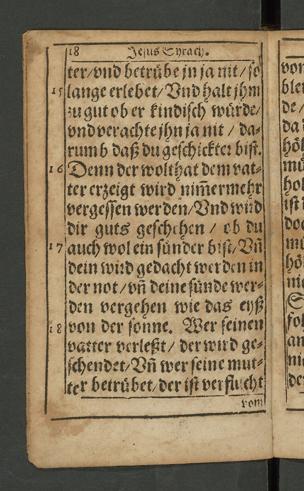 18 Jesus Syrach.
ter/vnd betrübe jn ja nit/so
15 lange er lebet/Vnd halt jhm
zu gut ob er kindisch würde/
vnd verachte jhn ja nit/da-
rumb daß du geschickter bist.
16 Denn der wolthat dem vat-
ter erzeigt wird nim̃ermehr
vergessen werden/Vnd wird
dir guts geschehen/ob du
17 auch wol ein sünder bist/Vñ
dein wird gedacht werden in
der not/vñ deine sünde wer-
den vergehen wie das eyß
18 von der sonne. Wer seinen
vatter verleßt/der wird ge-
schendet/Vñ wer seine mut-
ter betrübet/der ist verflucht
vom
von
de/
höl